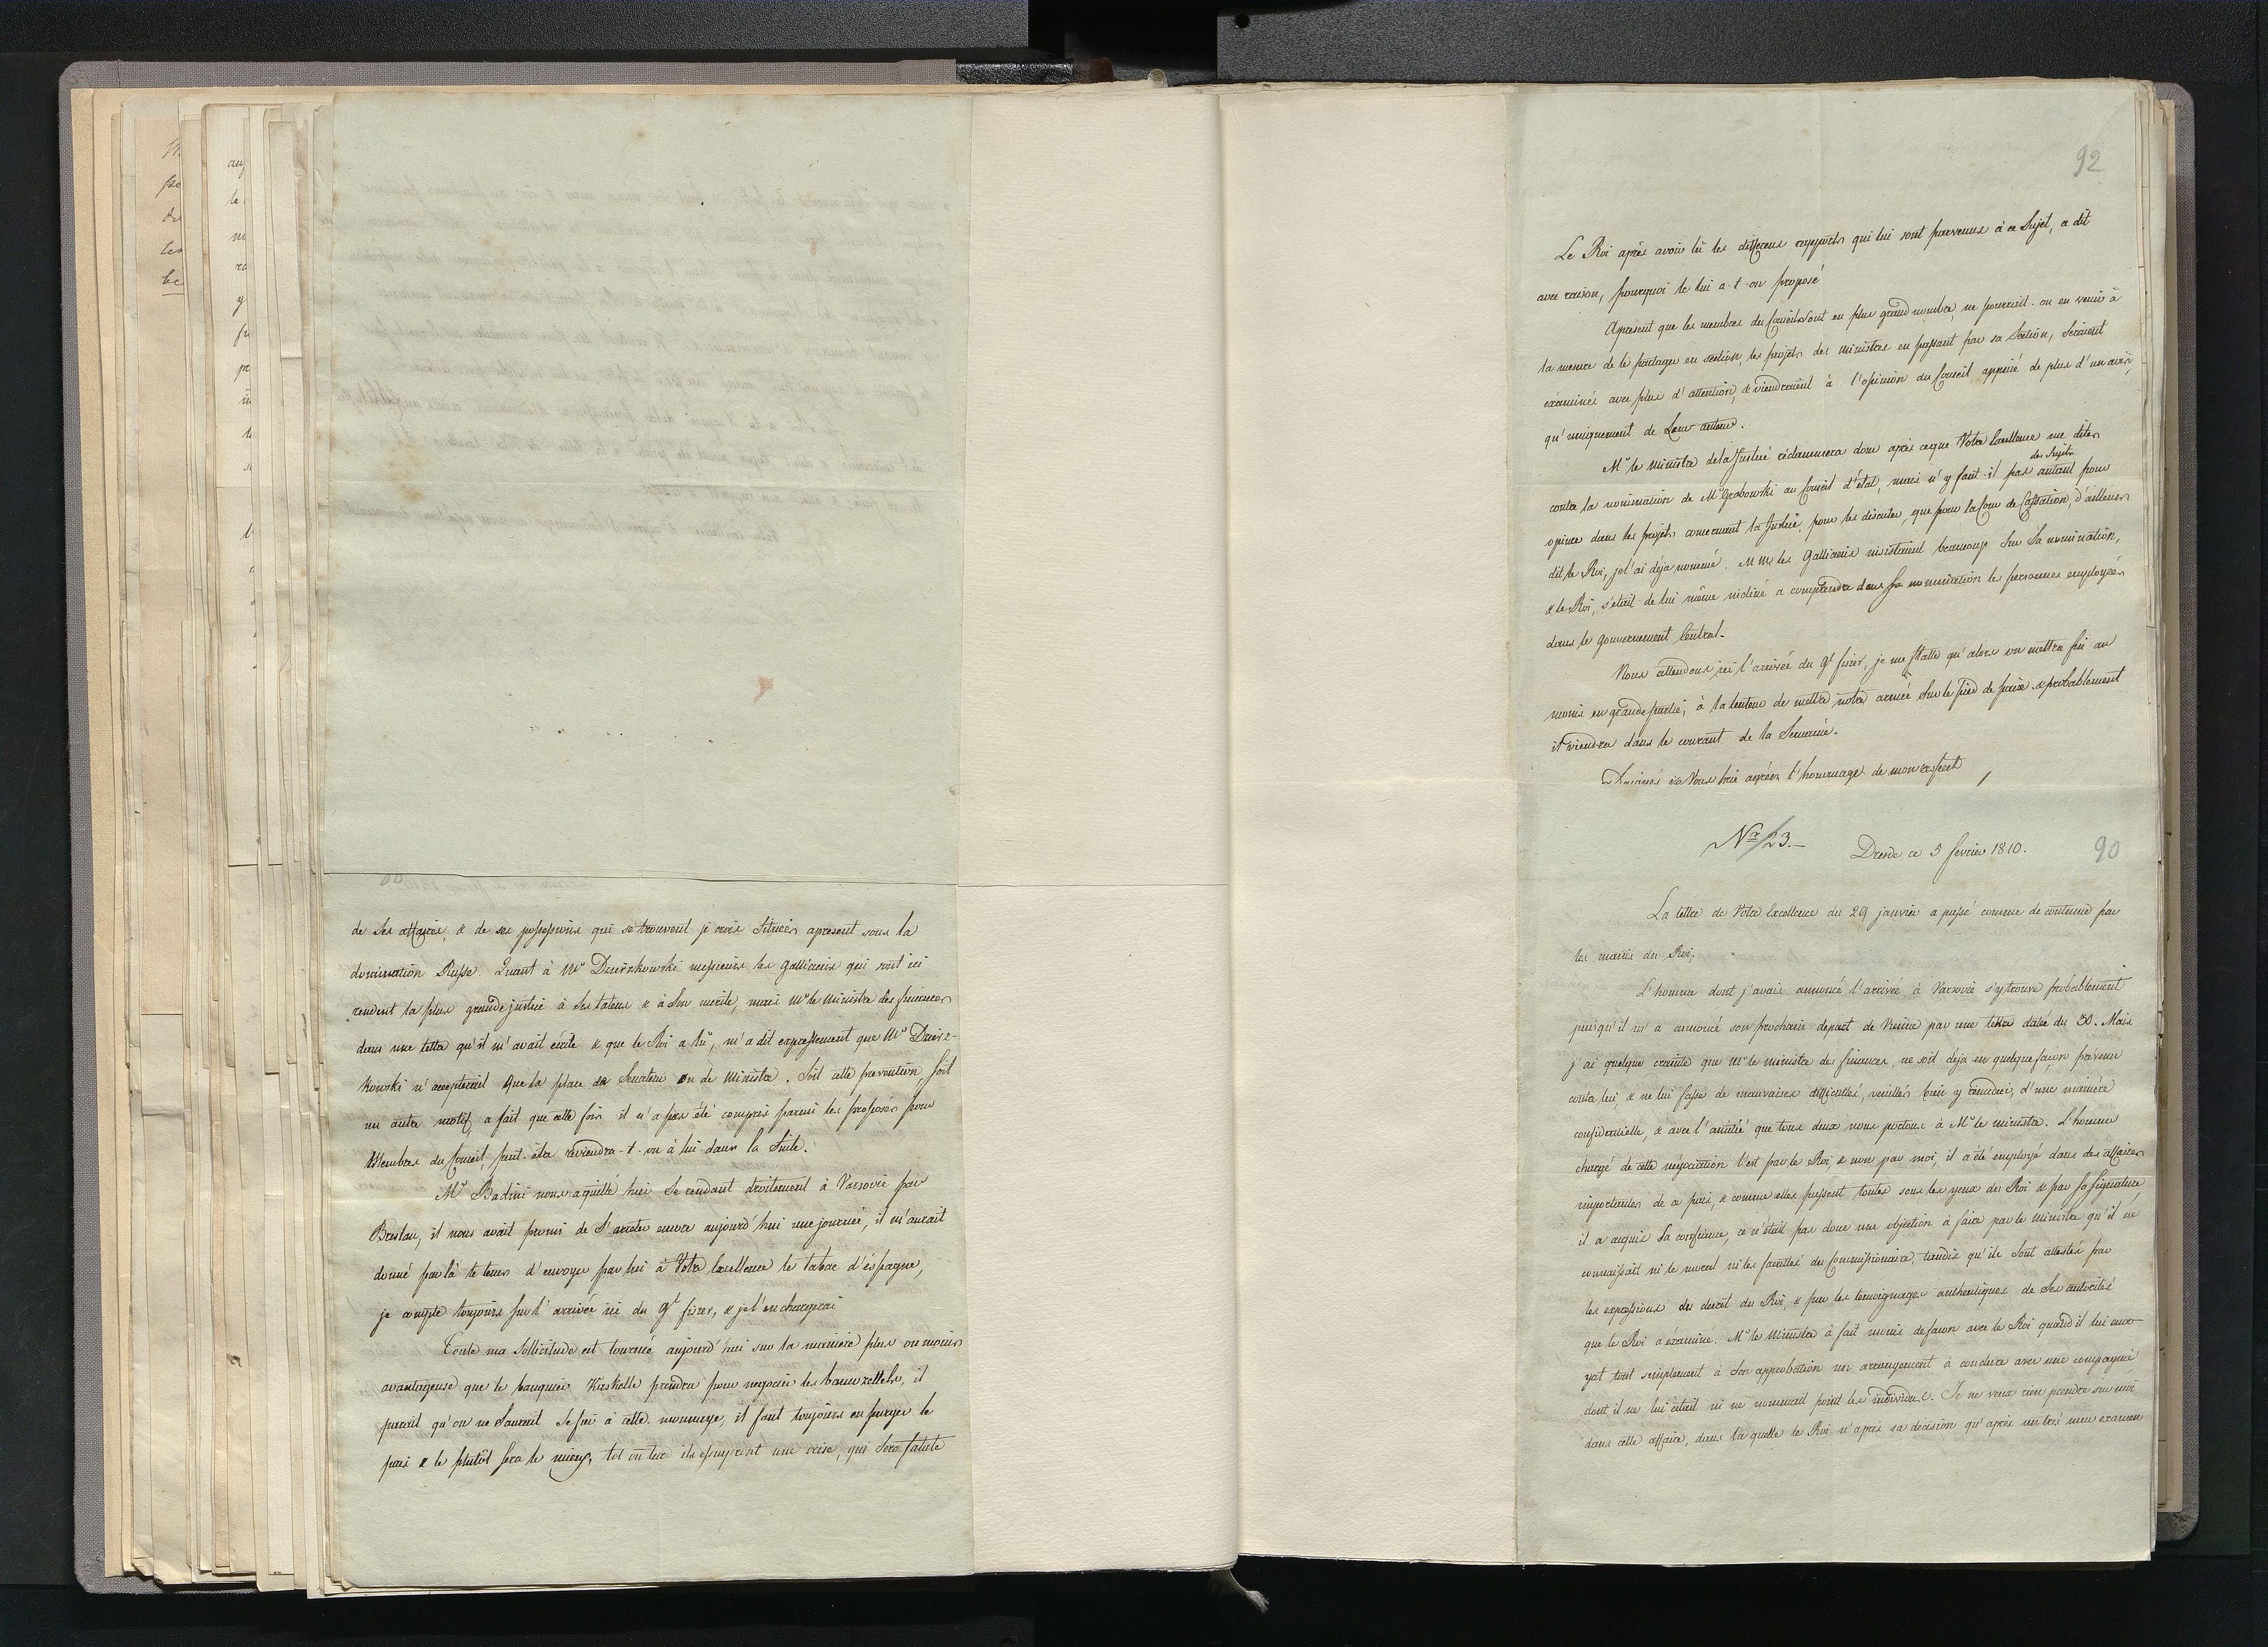 de ses affaires, & de ses possessions qui se trouvent je crois situées apresent sous la
domination Russe. Quant à Mr Dzierzkowski messieurs les Galliciens qui sont ici
rendent la plus grande justice à ses talens & à son merite, mais Mr le Ministre des finances
dans une lettre qu'il m'avait écrite & que le Roi a lû, m'a dit expressement que Mr Dzierz-
kowski n'accepterait que la place de Senateur ou de Ministre. Soit cette prevention, soit
un autre motif, a fait que cette fois il n'a pas été compris parmi les proposés pour
Membres du Conseil, peut-etre reviendra-t-on à lui dans la suite.
Mr Badini nous a quitté hier se rendant droitement à Varsovie par
Breslau, il nous avait promis de s'arreter encore aujourd'hui une journée, il m'aurait
donné par là le tems d'envoyer par lui à Votre Excellence le tabac d'éspagne,
je compte toujours sur l'arrivée ici du Gl fiszer, & je l'en chargerai
Toute ma sollicitude est tournée aujourd'hui sur la maniere plus ou moins
avantageuse que le banquier Kaskelle prendra pour negocier les bauwzettels, il
parait qu'on ne saurait se fier à cette monnaye, il faut toujours en purger le
pais & le plutôt sera le mieux, tot ou tard ils essuyeront une crise, qui sera fatale
92
Le Roi après avoir lû les differens rapports qui lui sont parvenus à ce sujet, a dit
avec raison, pourquoi le lui a-t-on proposé
Apresent que les membres du Conseil sont en plus grand nombre, ne pourrait-on en venir à
la mesure de le partager en section, les projets des ministres en passant par sa Section, seraient
examinés avec plus d'attention, & viendraient à l'opinion du Conseil appuié de plus d'un avis,
qu'uniquement de Leur auteur.
Mr le Ministre de la Justice réclammera donc après ce que Votre Excellence me dites
contre la nomination de Mr Grabowski au Conseil d'état, mais n'y faut-il pas autant des Sujets pour
opiner dans les projets concernant la Justice, pour les discuter, que pour la Cour de Cassation, d'ailleurs
dit le Roi, je l'ai déja nommé. M Mrs les Galliciens insistaient beaucoup sur sa nomination,
& le Roi, s'etait de lui même incliné a comprendre dans sa nomination les personnes employées
dans le Gouvernement Central.
Nous attendons ici l'arrivée du Gl fiszer, je me flatte qu'alors on mettra fin au
moins en grande partie, à la lenteur de mettre notre armée sur le pied de paix & probablement
il viendra dans le courant de la Semaine.
je Vous prie agréer l'hommage de mon respect
Nr/23.
Dresde ce 5 fevrier 1810.
90
La lettre de Votre Excellence du 29 janvier a passé comme de coutume par
les mains du Roi,
L'homme dont j'avais annoncé l'arrivée à Varsovie s'y trouve probablement
puisqu'il m'a annoncé son prochain depart de Vienne par une lettre datée du 30. Mais
j'ai quelque crainte que Mr le ministre des finances, ne soit déja en quelque facon prévenu
contre lui, & ne lui fasse de mauvaises difficultés, veuillés bien y remedier, d'une maniere
confidentielle, & avec l'amitié que tous deux nous portons à Mr le ministre. L'homme
chargé de cette négociation l'est par le Roi, & non par moi, il a été employé dans des affaires
importantes de ce pais, & comme elles passent toutes sous les yeux du Roi & par sa signature
il a acquis sa confiance, ce n'était pas donc une objection à faire par le Ministre qu'il ne
connaissait ni le moral ni les facultés du Commissionaire, tandis qu'ils sont attestés par
les expressions du decret du Roi, & par les temoignages authentiques de Ses autorités
que le Roi a examiné. Mr le Ministre à fait moins de facon avec le Roi quand il lui envo-
yat tout simplement à Son approbation un arrangement à conclure avec une compagnie
dont il ne lui citait ni ne nommait point les individus. Je ne veux rien prendre sur moi
dans cette affaire, dans la quelle le Roi n'a pris sa decision qu'après un très mur examen